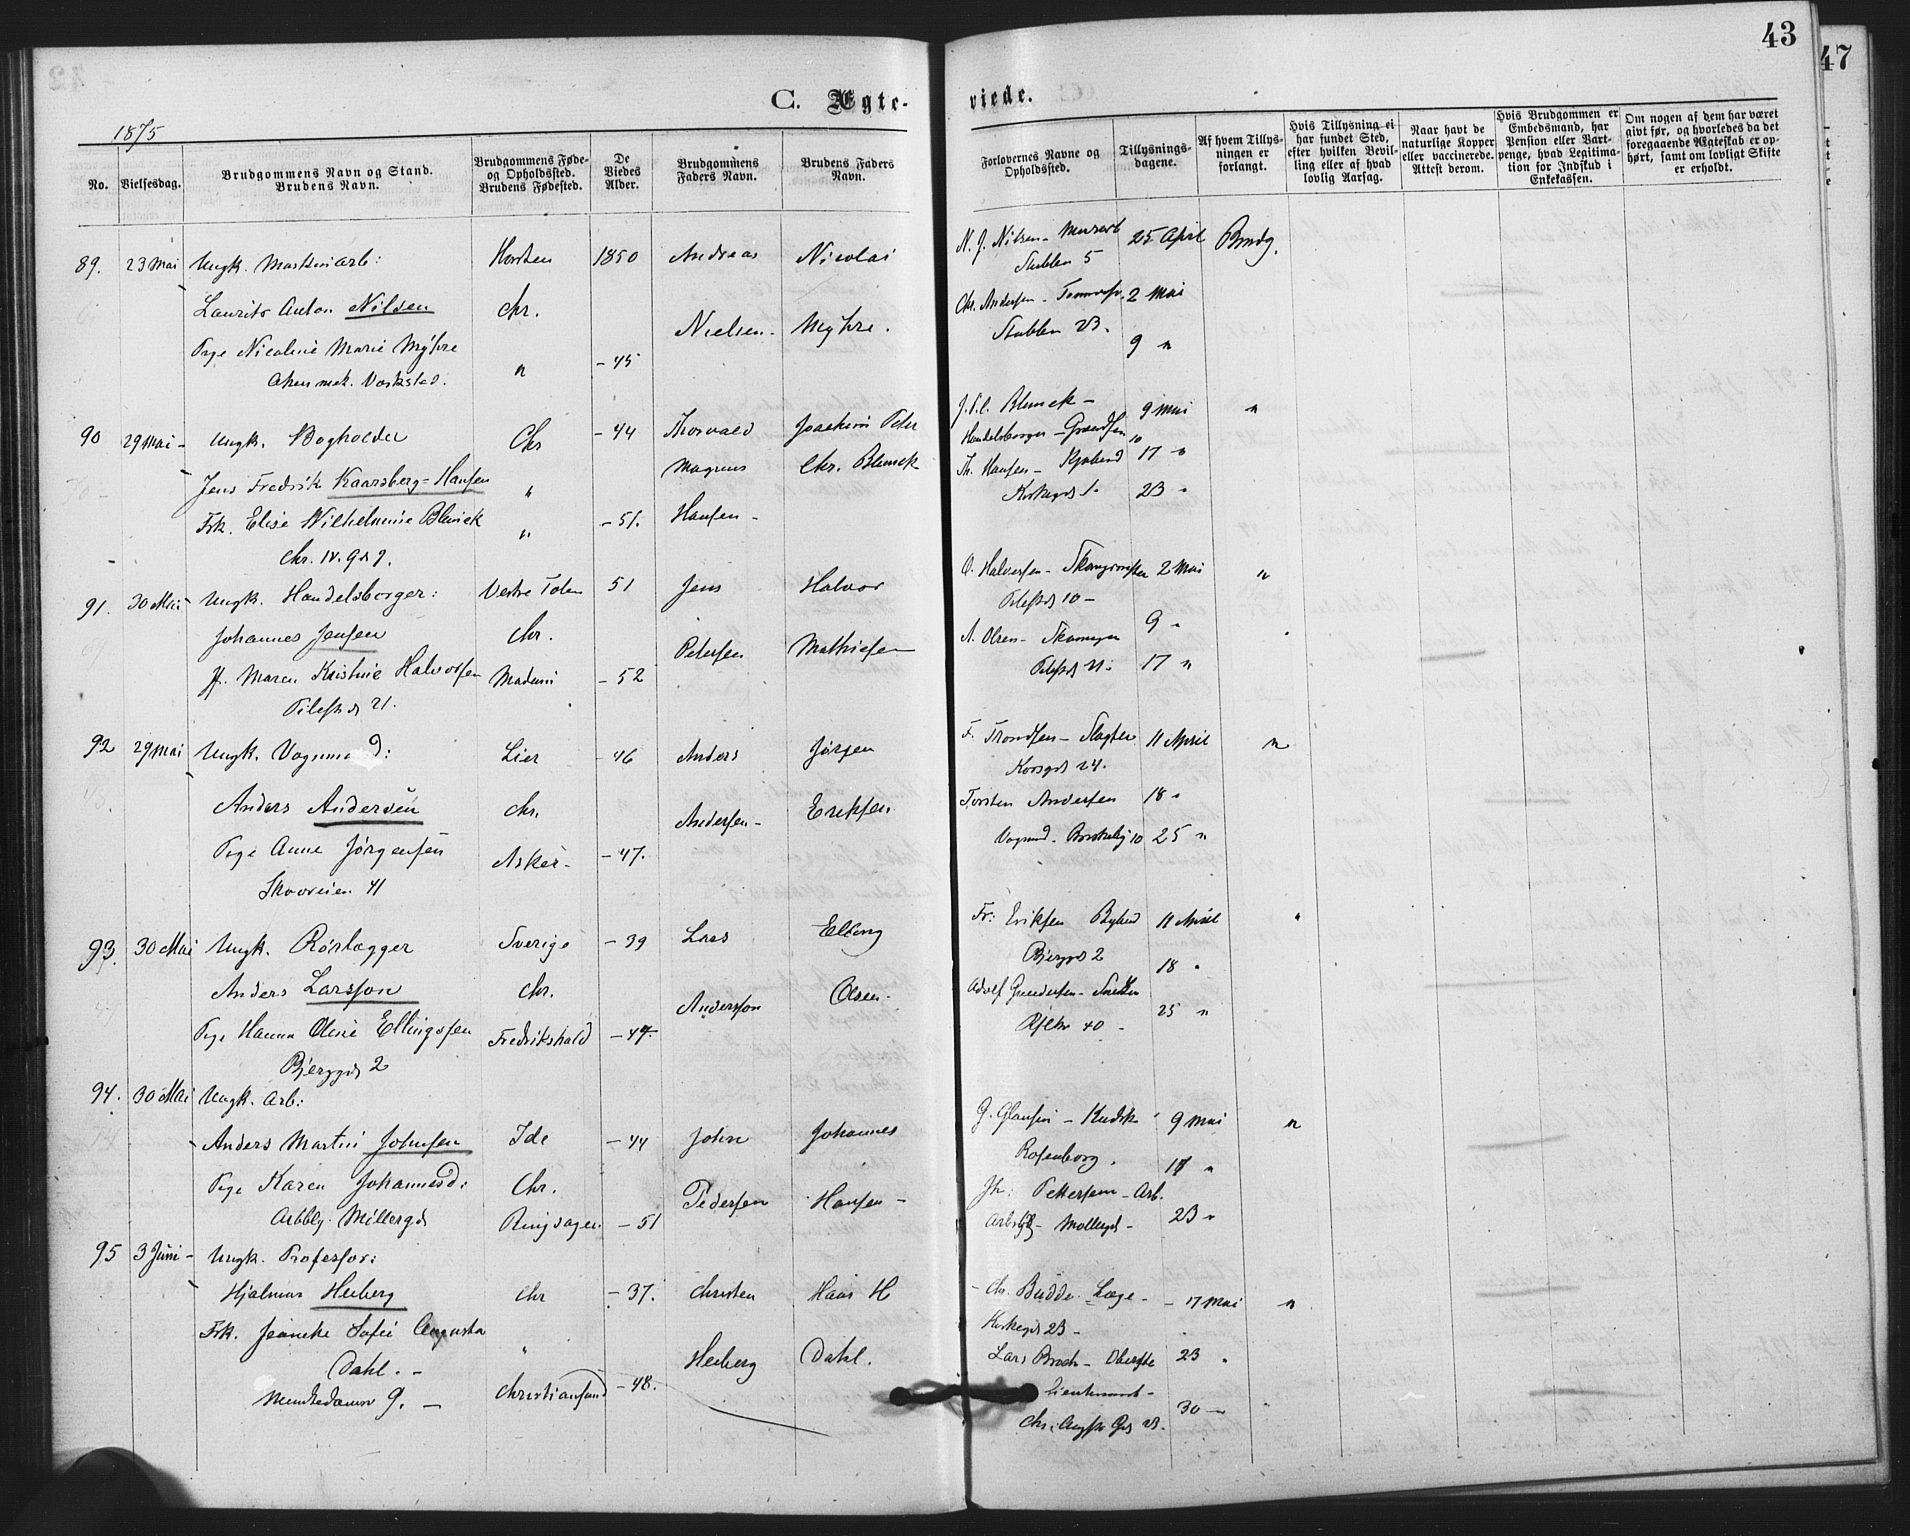 43
47
C. Ægte-
viede.
1875
No.
Vielsesdag.
Brudgommens Navn og Stand.
Brudens Navn.
Brudgommens Føde-
og Opholdssted.
Brudens Fødested.
De
Viedes
Alder.
Brudgommens
Faders Navn.
Brudens Faders
Navn.
Forlovernes Navne og
Opholdssted.
Tillysnings-
dagene.
Af hvem Tillys-
ningen er
forlangt.
Hvis Tillysning ei
har fundet Sted,
efter hvilken Bevil-
ling eller af hvad
lovlig Aarsag.
Naar havt de
naturlige Kopper
eller vaccinerede.
Attest derom.
Hvis Brudgommen er
Embedsmand, har
Pension eller Vart-
penge, hvad Legitima-
tion for Indskud i
Enkekassen.
Om nogen af dem har været
givt før, og hvorledes da det
foregaaende Ægteskab er op-
hørt, samt om lovligt Skifte
er erholdt.
89. 23 Mai Ungk. Maskinarb: Horten 1850 Andreas Nicolai N. J. Nilsen - 25 April Brudg.
Stubben 5
Laurits Anton Nilsen Chr. Nielsen - Myhre. Chr. Andersen - 2 Mai
Stubben 23.
Pige Nicoline Marie Myhre " - 45 9 "
Akers mek. Værksted.
90 29 Mai - Ungk. Bogholder Chr - 44 Thorvald Joachim Peter - 9 Mai "
Magnus Chr. Handelsborger - 10
Jens Fredrik Kaarsberg-Hansen " Th. Hansen - 17 "
Kirkegd 1. 23 "
Frk. Elise Wilhelmine " - 51. Hansen -
Chr. IV. Gd 7.
91. 30 Mai Ungk. Handelsborger: Vestre Toten 51 Jens Halvor O. Halvorsen - 2 Mai "
Pilestd 10 -
Johannes Jensen Chr. Petersen Mathiesen A. Olsen - 9 "
Pilestd 21. 17 "
Pf. Maren Kristine Halvorsen - 52
Pilestd 21.
92 29 Mai Ungk. Vognmand: Lier - 46 Anders Jørgen F. Trondsen - Slagter 11 April "
Korsgd 24.
Anders Andersen Chr. Andersen - Eriksen Torsten Andersen 18 "
Vognmd - 10 25 "
Pige Anne Jørgensen Asker - - 47.
41
93. 30 Mai Ungk. Rørlægger Sverige - 39 Lars Elling Fr: Eriksen 11 April "
Bjerggd 2
18 "
Anders Larsson Chr. Andersson Olsen - Adolf 25 "
40 -
Pige Hanna Oline Ellingsen Fredrikshald - 47.
Bjerggd 2
94. 30 Mai Ungk. Arb:
Anders Martin Johnsen Ide - 44 John Johannes G. - Kudsk 9 Mai "
Rosenborg. 17 "
Pige Karen Johannesd: Chr. Pedersen Hansen - Jh: Pettersen - Arb.
Arbblg. Møllergd Ringsager - 51 - Møllergd - 23 "
95 3 Juni - Ungk. Professor:
Hjalmar Heiberg Chr - 37. Christen Haar H - Chr. Budde Læge - - 17 Mai "
Kirkegd 23 -
Frk. Jeaneke Sofie Augusta " Heiberg Dahl. Lars Broch - Oberste 23 "
Dahl. - Lieutenant -
Munkedamsv 9. - Christiansund - 48. 30 -